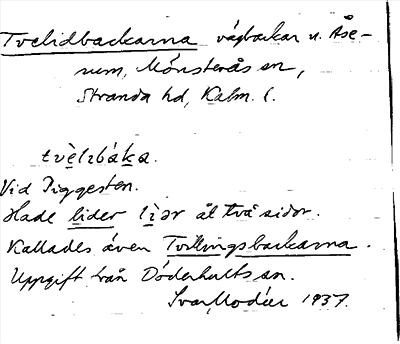 Tvelidbackarna vägbackar n. Åse-
rum, Mönsterås sn,
Stranda hd, Kalm. l.
tvèlıbáka.
Vid Tiggesten.
Hade lider lìər åt två sidor.
Kallades även Tvillingsbackarna.
Uppgift från Döderhults sn.
Ivar Modéer 1937.